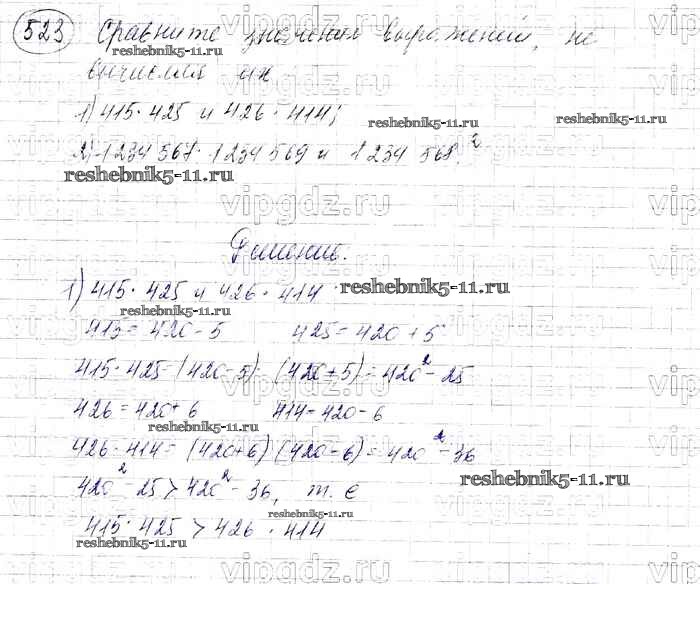 523 Сравните значения выражений, не
вычисляя их
1) 415 · 425 и 426 · 414;
2) 1 234 567 · 1 234 569 и 1 234 568²
Решение.
1) 415 · 425 и 426 · 414
415 = 420 - 5 425 = 420 + 5
415 · 425 = (420 - 5) (420 + 5) = 420² - 25
426 = 420 + 6 414 = 420 - 6
426 · 414 = (420 + 6) (420 - 6) = 420² - 36
420² - 25 > 420² - 36, т. е
415 · 425 > 426 · 414